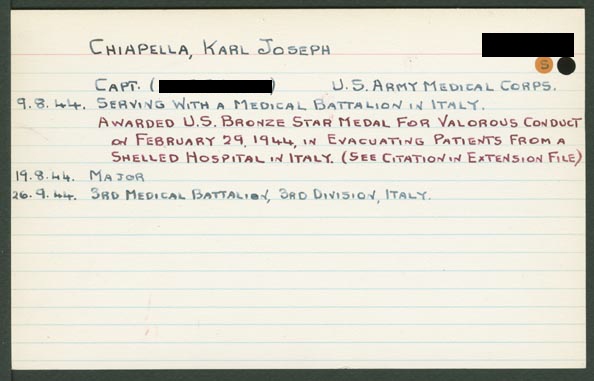 CHIAPELLA, KARL JOSEPH
S
CAPT. ( ) U.S. ARMY MEDICAL CORPS.
9.8.44. SERVING WITH A MEDICAL BATTALION IN ITALY.
AWARDED U.S. BRONZE STAR MEDAL FOR VALOROUS CONDUCT
ON FEBRUARY 29, 1944, IN EVACUATING PATIENTS FROM A
SHELLED HOSPITAL IN ITALY. (SEE CITATION IN EXTENSION FILE)
19.8.44. MAJOR
26.9.44. 3RD MEDICAL BATTALION, 3RD DIVISION, ITALY.